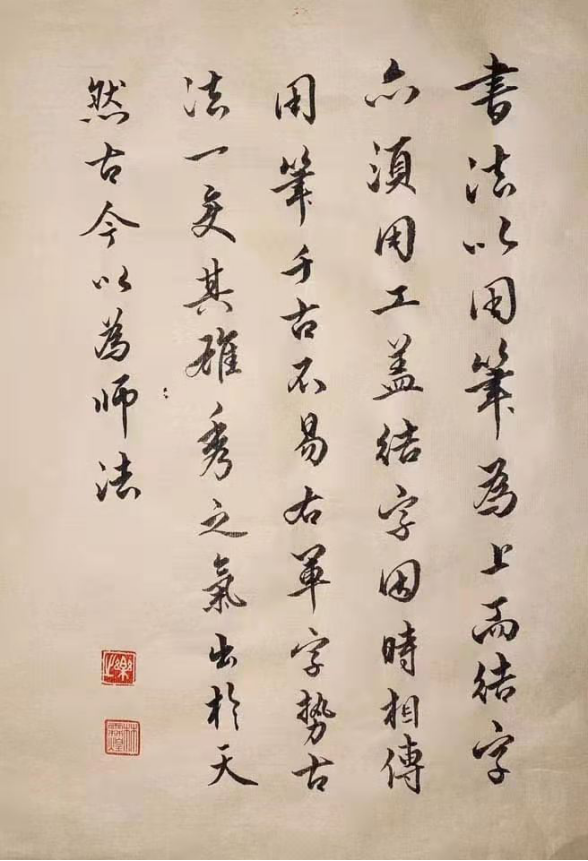 書法以用筆為上而結字
亦須用工盖結字因時相傳
用筆千古不易右軍字勢古
法一变其雄秀之氣出於天
然古今以為師法